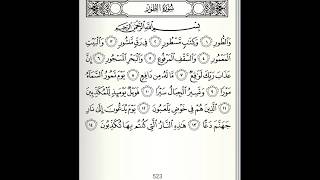 سُورَةُ الطُّورِ
بِسْمِ اللَّهِ الرَّحْمَٰنِ الرَّحِيمِ
وَالطُّورِ ١ وَكِتَابٍ مَّسْطُورٍ ٢ فِي رَقٍّ مَّنشُورٍ ٣ وَالْبَيْتِ
الْمَعْمُورِ ٤ وَالسَّقْفِ الْمَرْفُوعِ ٥ وَالْبَحْرِ الْمَسْجُورِ ٦ إِنَّ
عَذَابَ رَبِّكَ لَوَاقِعٌ ٧ مَّا لَهُ مِن دَافِعٍ ٨ يَوْمَ تَمُورُ السَّمَاءُ
مَوْرًا ٩ وَتَسِيرُ الْجِبَالُ سَيْرًا ١٠ فَوَيْلٌ يَوْمَئِذٍ لِّلْمُكَذِّبِينَ
١١ الَّذِينَ هُمْ فِي خَوْضٍ يَلْعَبُونَ ١٢ يَوْمَ يُدَعُّونَ إِلَىٰ نَارِ
جَهَنَّمَ دَعًّا ١٣ هَٰذِهِ النَّارُ الَّتِي كُنتُم بِهَا تُكَذِّبُونَ ١٤
523